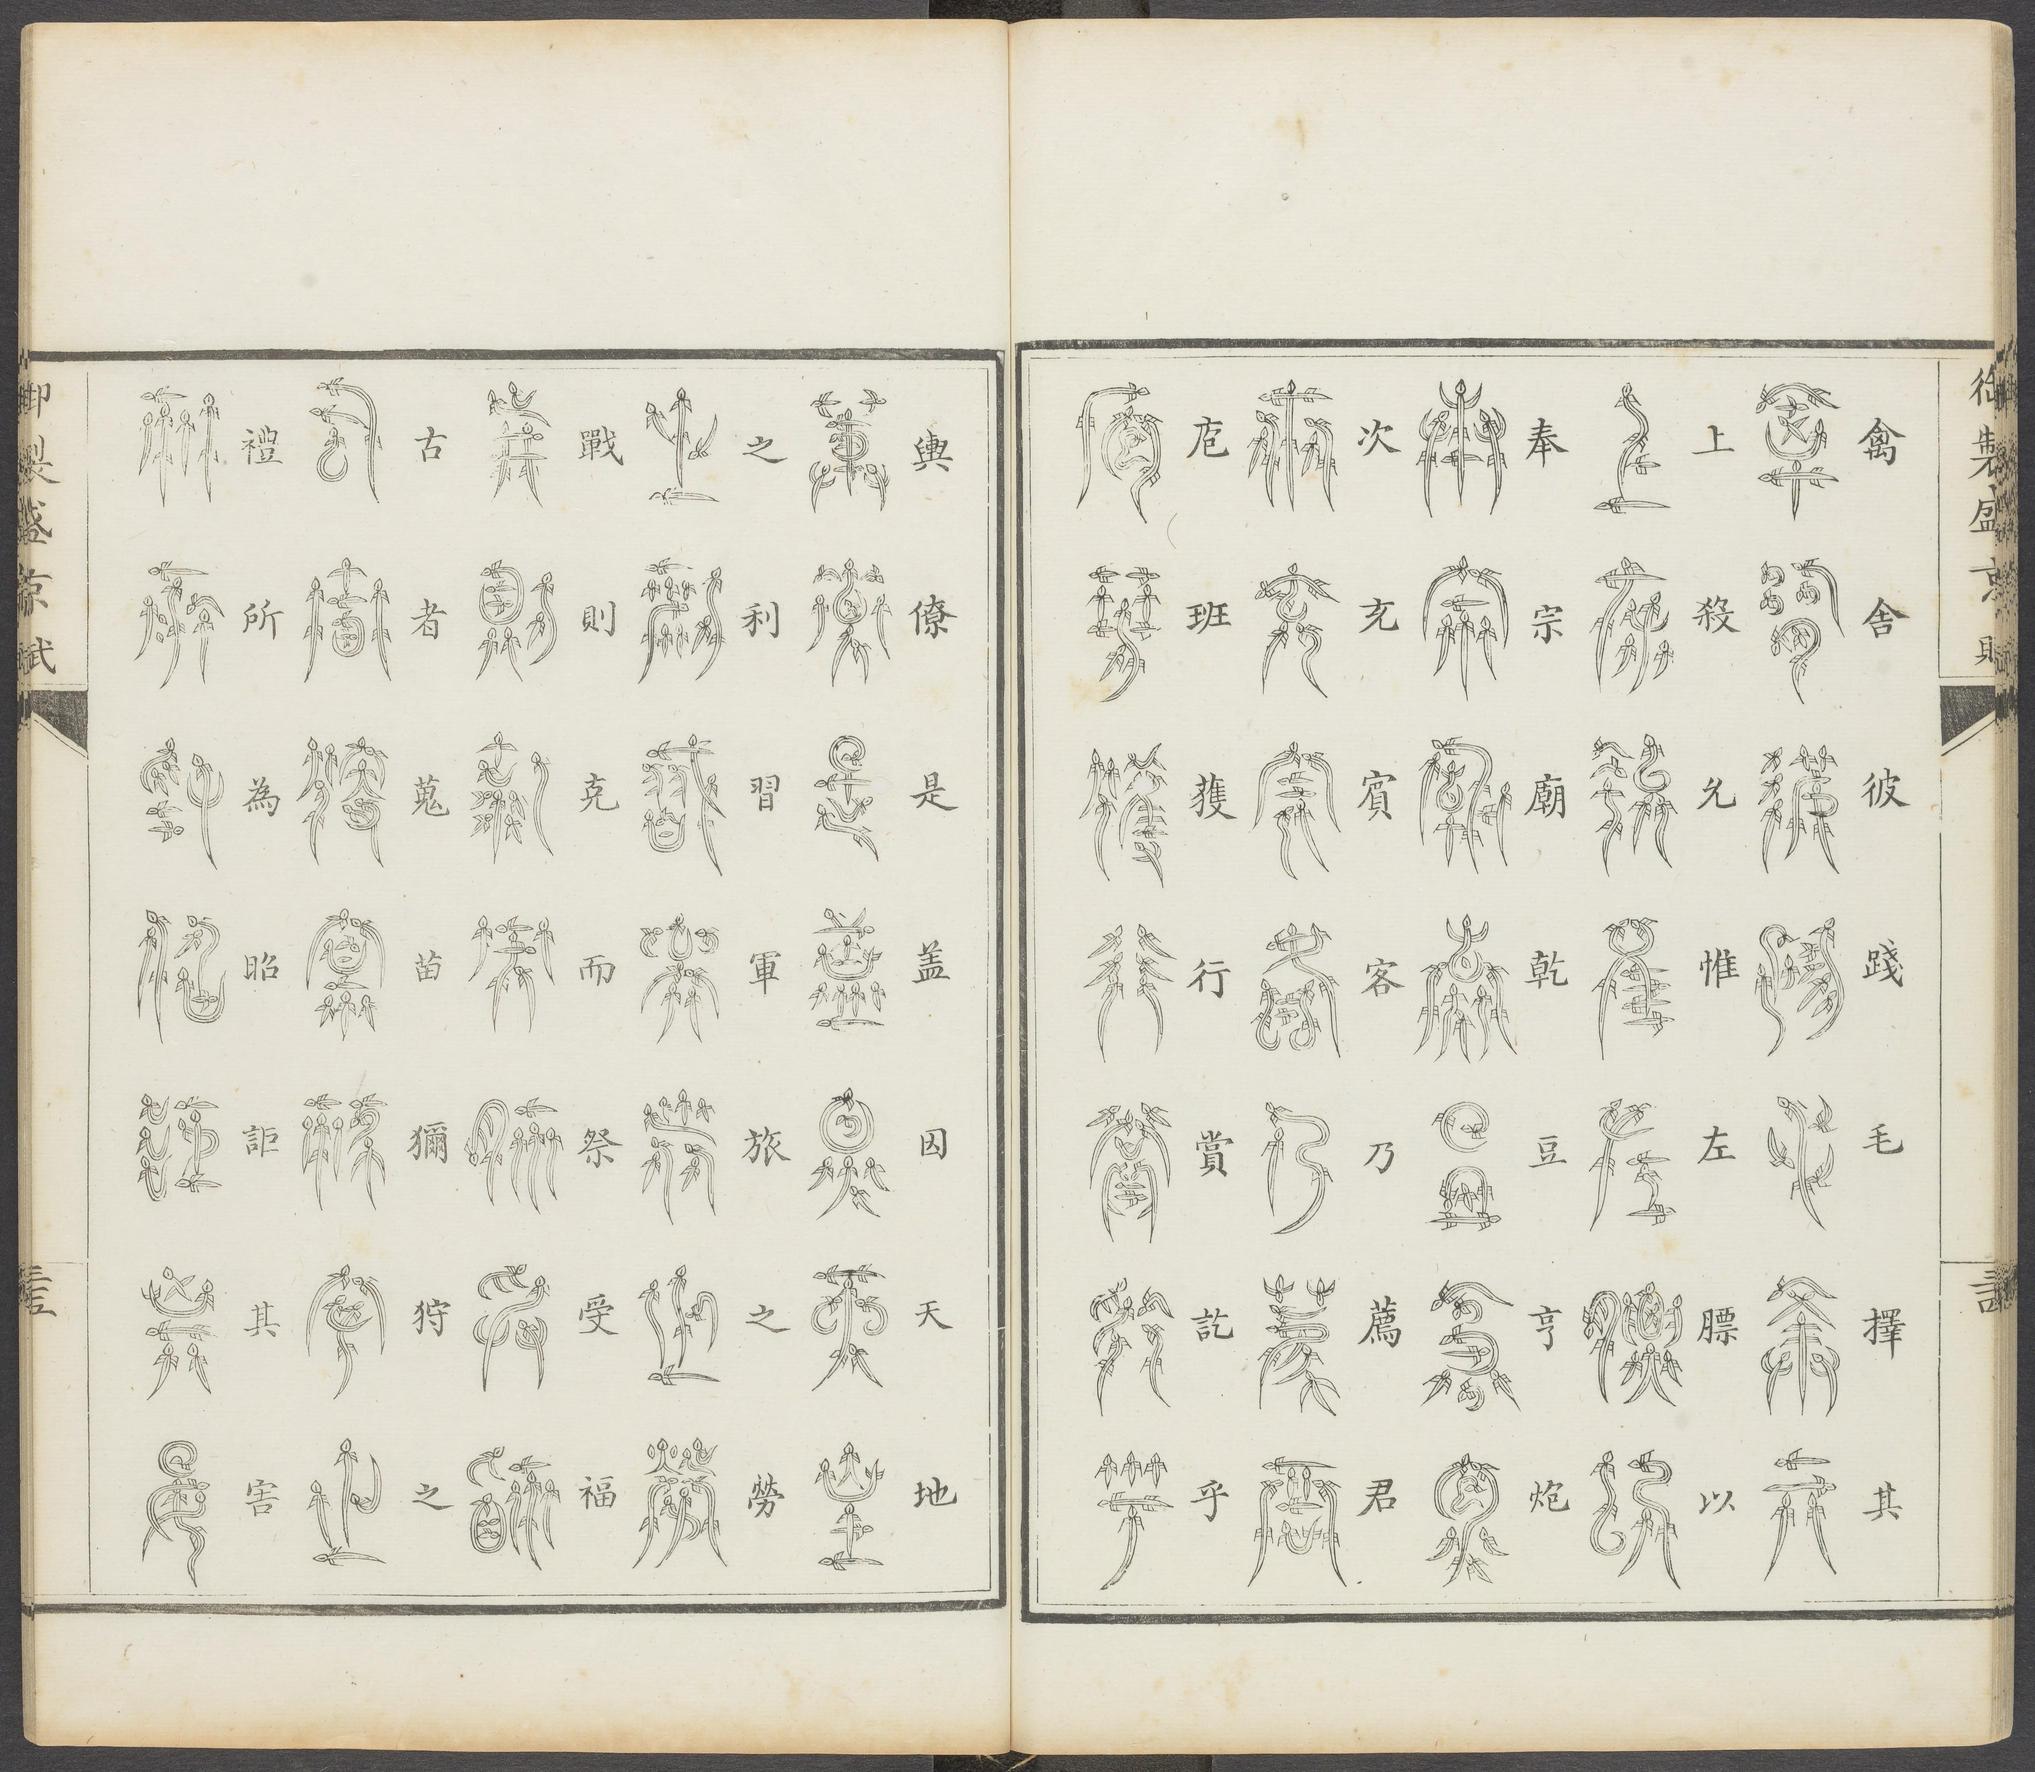 禽舍彼踐毛擇其
上殺允惟左膘以
奉宗廟乾豆亨炮
次充賓客乃薦君
庖班獲行賞訖乎
輿僚是蓋因天地
之利習軍旅之勞
戰則克而祭受福
古者蒐苗獮狩之
禮所為昭詎其害
御製盛京賦